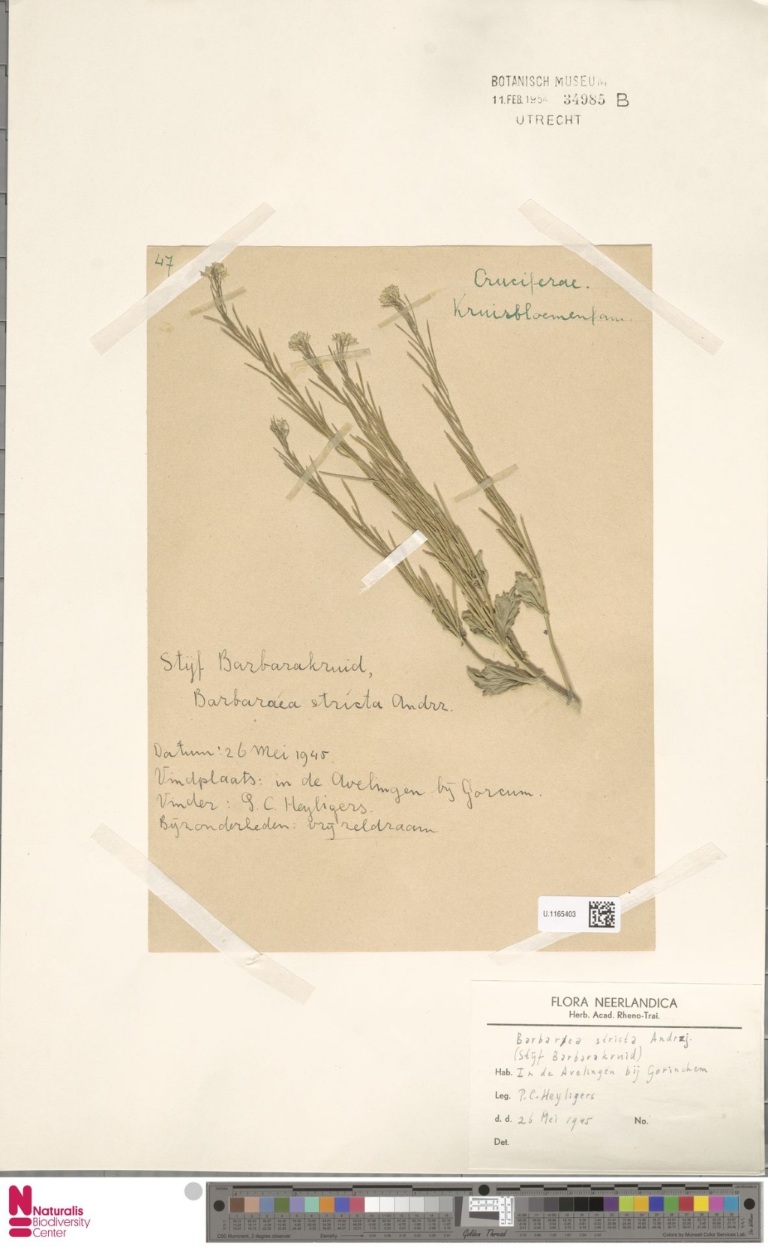 BOTANISCH MUSEUM
11.FEB.1954 34985 B
UTRECHT
47
Cruciferae.
Kruisbloemenfam.
Stijf Barbarakruid,
Barbaraéa stricta Andrz.
Datum: 26 Mei 1945
Vindplaats: in de Avelingen bij Gorcum.
Vinder: P. C. Heyligers.
Bijzonderheden: vrij zeldzaam
U.1165403
FLORA NEERLANDICA
Herb. Acad. Rheno-Trai.
Barbarea stricta Andrzj.
(Stijf Barbarakruid)
Hab. In de Avelingen bij Gorinchem
Leg. P.C. Heyligers
d. d. 26 Mei 1945 No.
Det.
Naturalis
Biodiversity
Center
Golden Thread